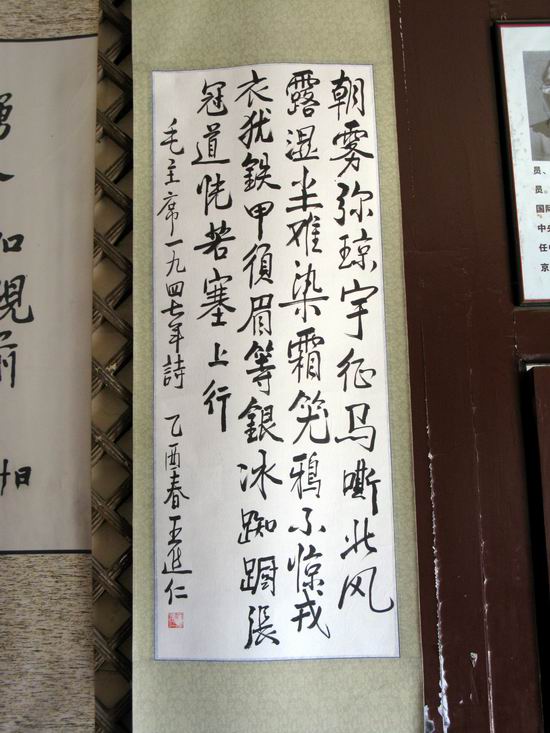 朝雾弥琼宇征马嘶北风
露湿尘难染霜笼鸦不惊戎
衣犹鉄甲須眉等銀冰踟蹰張
冠道恍若塞上行
毛主席一九四七年詩 乙酉春王進仁
员、
员。
国际
中央
京